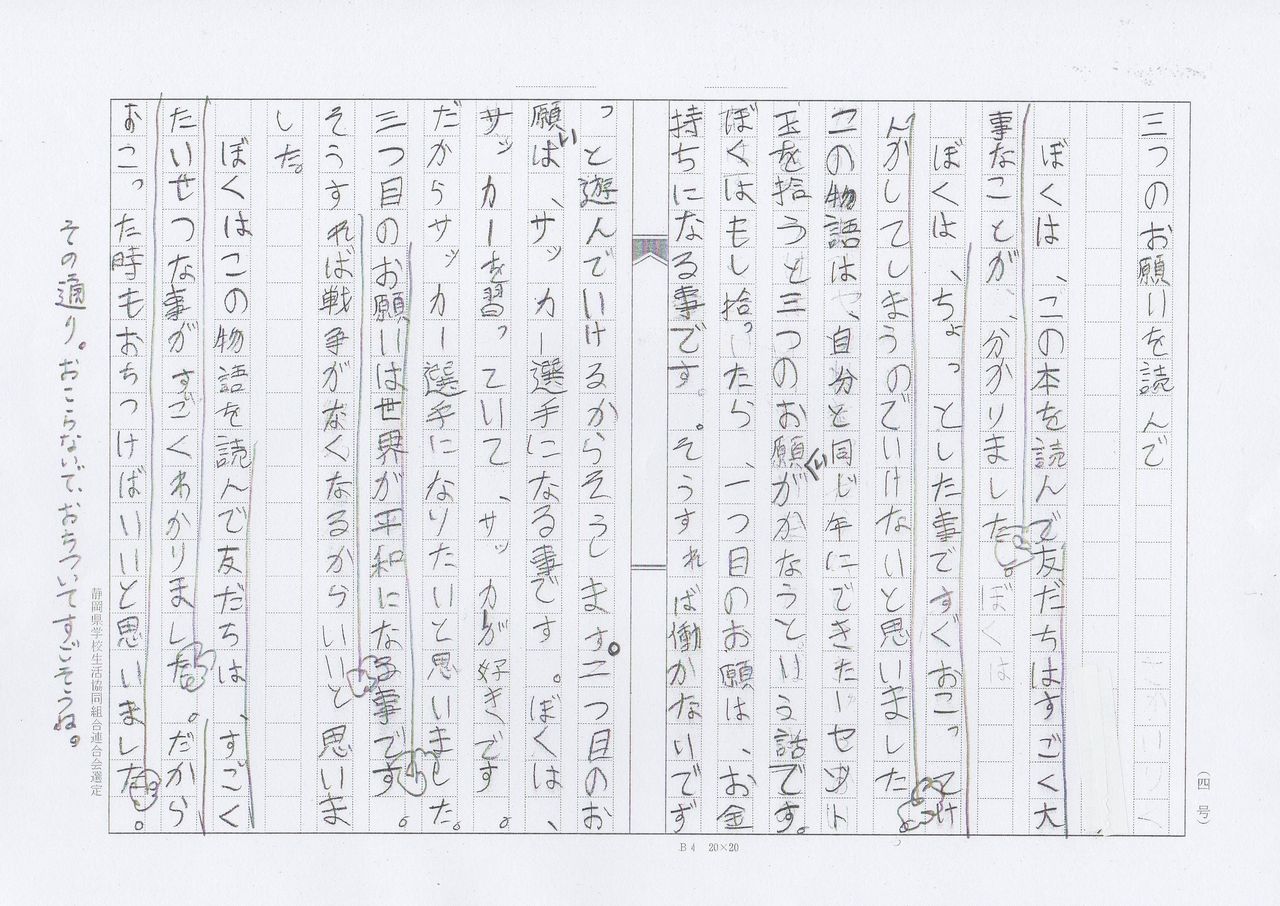 三つのお願いを読んで
ぼくは、この本を読んで友だちはすごく大
事なことが、分かりました。ぼくは
ぼくは、ちょっとした事ですぐおこってけ
んかしてしまうのでいけないと思いました。
この物語は、自分と同じ年にできた一セント
玉を拾うと三つのお願いがかなうという話です。
ぼくはもし拾ったら、一つ目のお願は、お金
持ちになる事です。そうすれば働かないでず
っと遊んでいけるからそうします。二つ目のお
願いは、サッカー選手になる事です。ぼくは、
サッカーを習っていて、サッカーが好きです。
だからサッカー選手になりたいと思いました。
三つ目のお願いは世界が平和になる事です。
そうすれば戦争がなくなるからいいと思いま
した。
ぼくはこの物語を読んで友だちは、すごく
たいせつな事がすごくわかりました。だから
おこった時もおちつけばいいと思いました。
その通り。おこらないで、おちついてすごそうね。
静岡県学校生活協同組合連合会選定
(四号)
B4 20×20